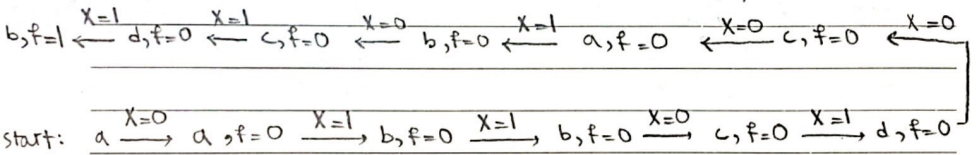 b,f=1 ←X=1 d,f=0 ←X=1 c,f=0 ←X=0 b,f=0 ←X=1 a,f=0 ←X=0 c,f=0 ←X=0
start: a X=0→ a,f=0 X=1→ b,f=0 X=1→ b,f=0 X=0→ c,f=0 X=1→ d,f=0